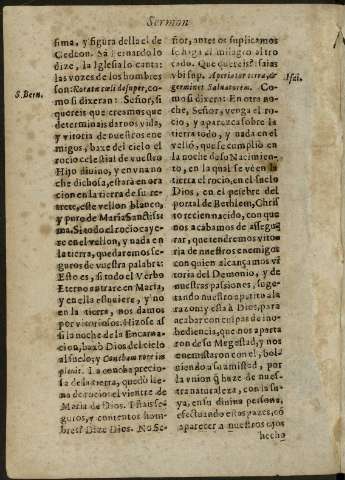 Sermon
sima, y figura della el de
Gedeon. Sã Bernardo lo
dize, la Iglesia lo canta:
las vozes de los hombres
son: Rorate cæli desuper, co-
mo si dixeran: Señor, si
quereis que creamos que
determinais darnos vida,
y vitoria de nuestros ene
migos, baxe del cielo el
rocio celestial de vuestro
Hijo divino, y en vna no
che dichosa, estarà en ora
cion en la tierra de su re-
trete, este vellon blanco,
y puro de Maria Sanctissi
ma. Si todo el rocio caye-
re en el vellon, y nada en
la tierra, quedaremos se-
guros de vuestra palabra:
Esto es, si todo el Verbo
Eterno entrare en Maria,
y en ella estuviere, y no
en la tierra, nos damos
por vitoriosos. Hizose as
si la noche de la Encarna
cion, baxò Dios del cielo
al suelo; y Concham rore im
plevit. La concha precio
sa de la tierra, quedò lle-
na de rocio el vientre de
Maria de Dios. Estais se-
guros, y contentos hom-
bres? Dize Dios. No Se-
S. Bern.
ñor, antes os suplicamos
se haga el milagro al tro
cado. Que quereis? Isaias
vbi sup. Aperiatur terra, &
germinet Salvatorem. Co-
mo si dixera: En otra no-
che, Señor, venga el ro-
cio, y aparezca sobre la
tierra todo, y nada en el
vellõ, que se cumpliò en
la noche de su Nacimien-
to, en la qual se vè en la
tierra el rocio, en el suelo
Dios, en el pesebre del
portal de Bethlem, Chris
to recien nacido, con que
nos acabamos de assegu
rar, que tendremos vito
ria de nuestros enemigos
con quien alcançamos vi
toria del Demonio, y de
nuestras passiones, suge-
tando nuestro apetito a la
razon, y esta à Dios, para
acabar con culpas de ino-
bediencia, que nos aparta
ron de su Magestad, y nos
enemistaron con el, bol-
viendo a su amistad, por
la vnion q̃ haze de nues-
tra naturaleza, con la su-
ya, en su divina persona,
efectuando estas pazes, cõ
aparecer a nuestros ojos
hecho
Isai.